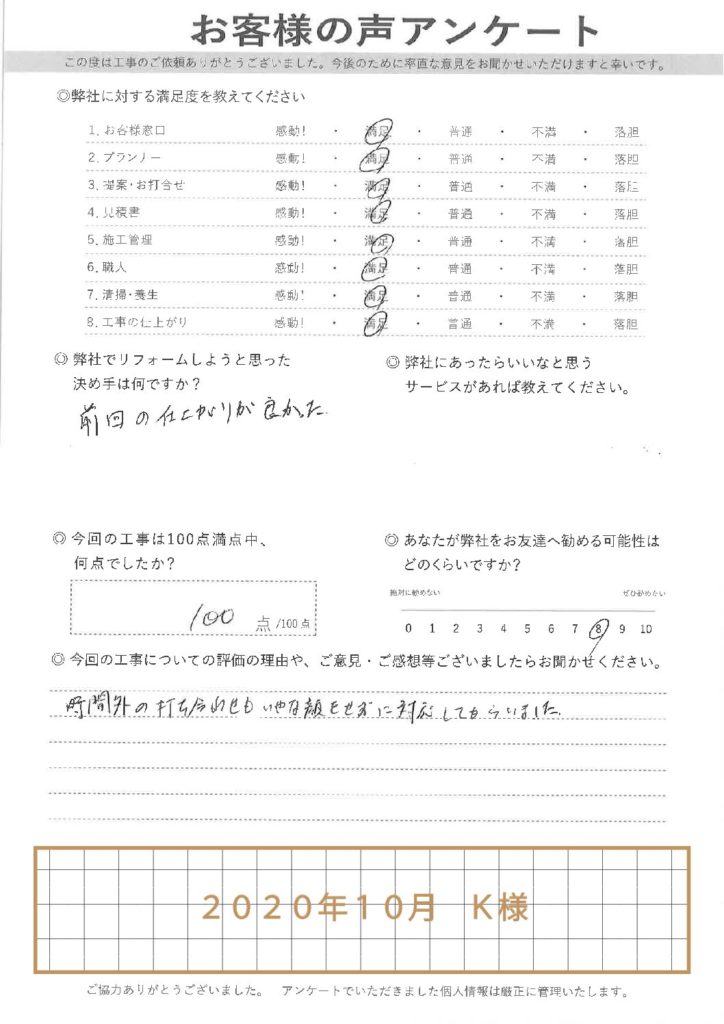 お客様の声アンケート
この度は工事のご依頼ありがとうございました。今後のために率直な意見をお聞かせいただけますと幸いです。
◎弊社に対する満足度を教えてください
1. お客様窓口 感動! ・ 満足 ・ 普通 ・ 不満 ・ 落胆
2. プランナー 感動! ・ 満足 ・ 普通 ・ 不満 ・ 落胆
3. 提案・お打合せ 感動! ・ 満足 ・ 普通 ・ 不満 ・ 落胆
4. 見積書 感動! ・ 満足 ・ 普通 ・ 不満 ・ 落胆
5. 施工管理 感動! ・ 満足 ・ 普通 ・ 不満 ・ 落胆
6. 職人 感動! ・ 満足 ・ 普通 ・ 不満 ・ 落胆
7. 清掃・養生 感動! ・ 満足 ・ 普通 ・ 不満 ・ 落胆
8. 工事の仕上がり 感動! ・ 満足 ・ 普通 ・ 不満 ・ 落胆
◎ 弊社でリフォームしようと思った
決め手は何ですか？
前回の仕上がりが良かった
◎ 弊社にあったらいいなと思う
サービスがあれば教えてください。
◎ 今回の工事は100点満点中、
何点でしたか？
100 点 /100点
◎ あなたが弊社をお友達へ勧める可能性は
どのくらいですか？
絶対に勧めない ぜひ勧めたい
0 1 2 3 4 5 6 7 8 9 10
◎ 今回の工事についての評価の理由や、ご意見・ご感想等ございましたらお聞かせください。
時間外の打ち合わせもいやな顔をせずに対応してもらいました。
2020年10月 K様
ご協力ありがとうございました。 アンケートでいただきました個人情報は厳正に管理いたします。